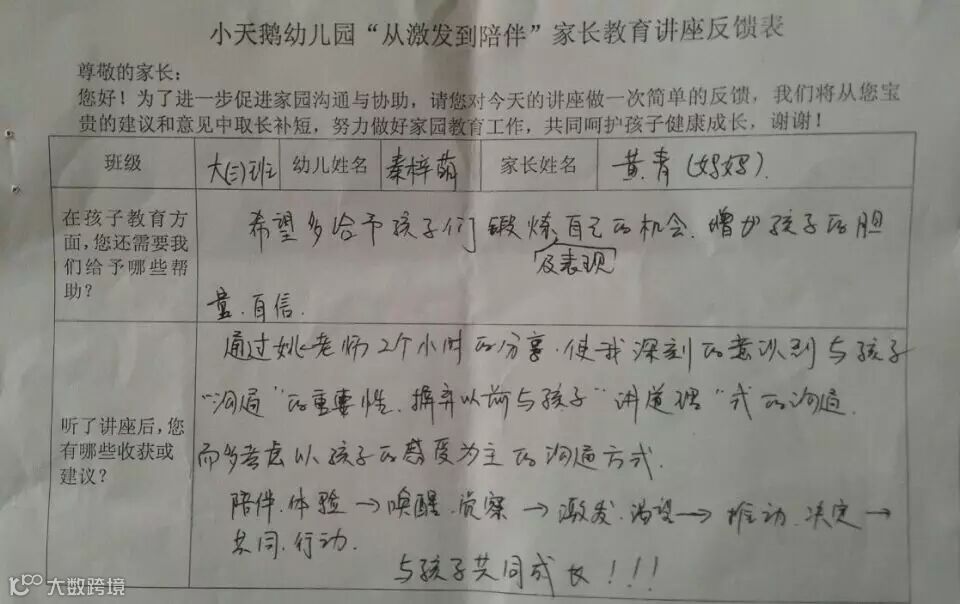 小天鹅幼儿园“从激发到陪伴”家长教育讲座反馈表
尊敬的家长：
您好！为了进一步促进家园沟通与协助，请您对今天的讲座做一次简单的反馈，我们将从您宝
贵的建议和意见中取长补短，努力做好家园教育工作，共同呵护孩子健康成长，谢谢！
班级 大(三)班 幼儿姓名 秦梓萌 家长姓名 黄青(妈妈).
在孩子教育方面，您还需要我们给予哪些帮助？
希望多给予孩子们锻炼自己的机会.增加孩子的胆
及表现
量.自信.
听了讲座后，您有哪些收获或建议？
通过姚老师2个小时的分享.使我深刻的意识到与孩子
“沟通”的重要性.摒弃以前与孩子“讲道理”式的沟通.
而多考虑以孩子的感受为主的沟通方式.
陪伴.体验→唤醒.觉察→激发.渴望→推动.决定→
共同.行动.
与孩子共同成长!!!
大数跨境